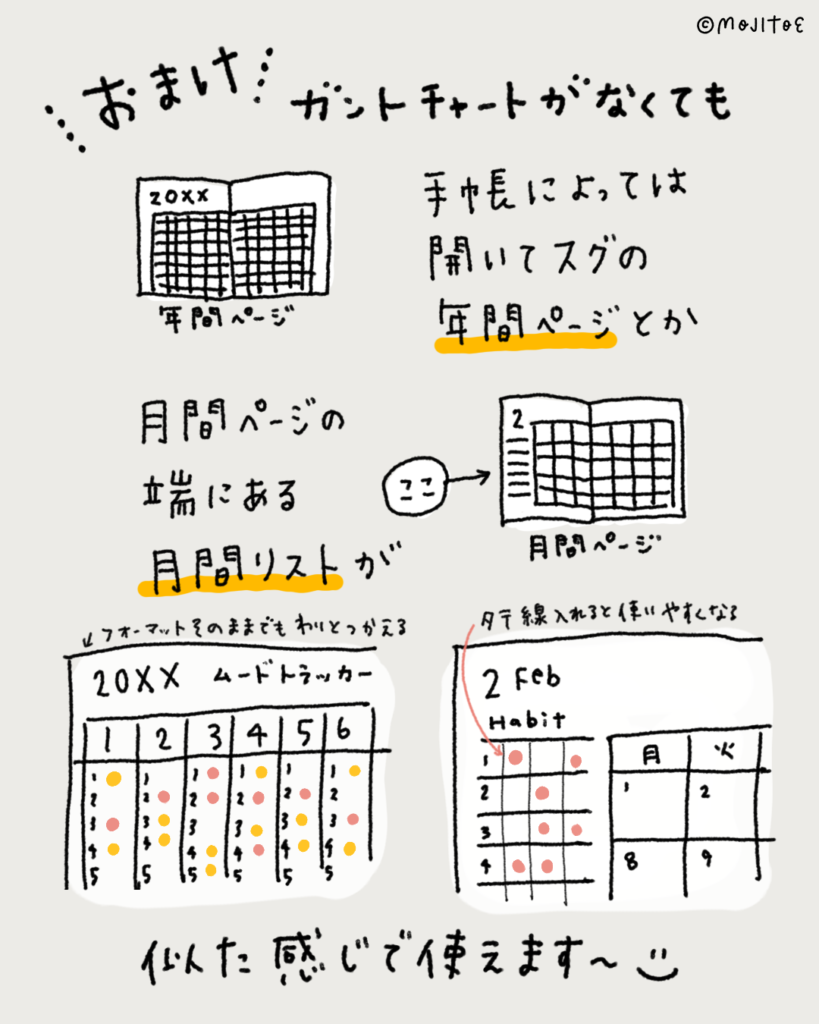 ©MOJITOE
おまけ ガントチャートがなくても
20XX
年間ページ
手帳によっては
開いてスグの
年間ページとか
月間ページの
端にある
月間リストが
ココ
2
月間ページ
フォーマットそのままでもわりとつかえる
20XX ムードトラッカー
1 2 3 4 5 6
1 1 1 1 1 1
2 2 2 2 2 2
3 3 3 3 3 3
4 4 4 4 4 4
5 5 5 5 5 5
タテ線入れると使いやすくなる
2 Feb
Habit
1
2
3
4
月 火
1 2
8 9
似た感じで使えます〜